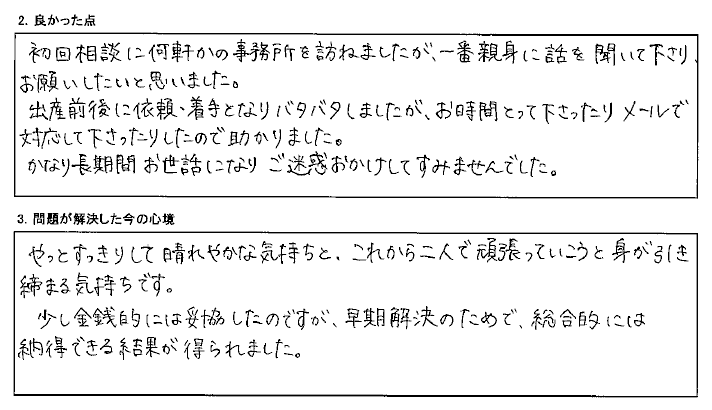 2. 良かった点
初回相談に何軒かの事務所を訪ねましたが、一番親身に話を聞いて下さり、
お願いしたいと思いました。
出産前後に依頼・着手となりバタバタしましたが、お時間とって下さったりメールで
対応して下さったりしたので助かりました。
かなり長期間お世話になりご迷惑おかけしてすみませんでした。
3. 問題が解決した今の心境
やっとすっきりして晴れやかな気持ちと、これから二人で頑張っていこうと身が引き
締まる気持ちです。
少し金銭的には妥協したのですが、早期解決のためで、総合的には
納得できる結果が得られました。